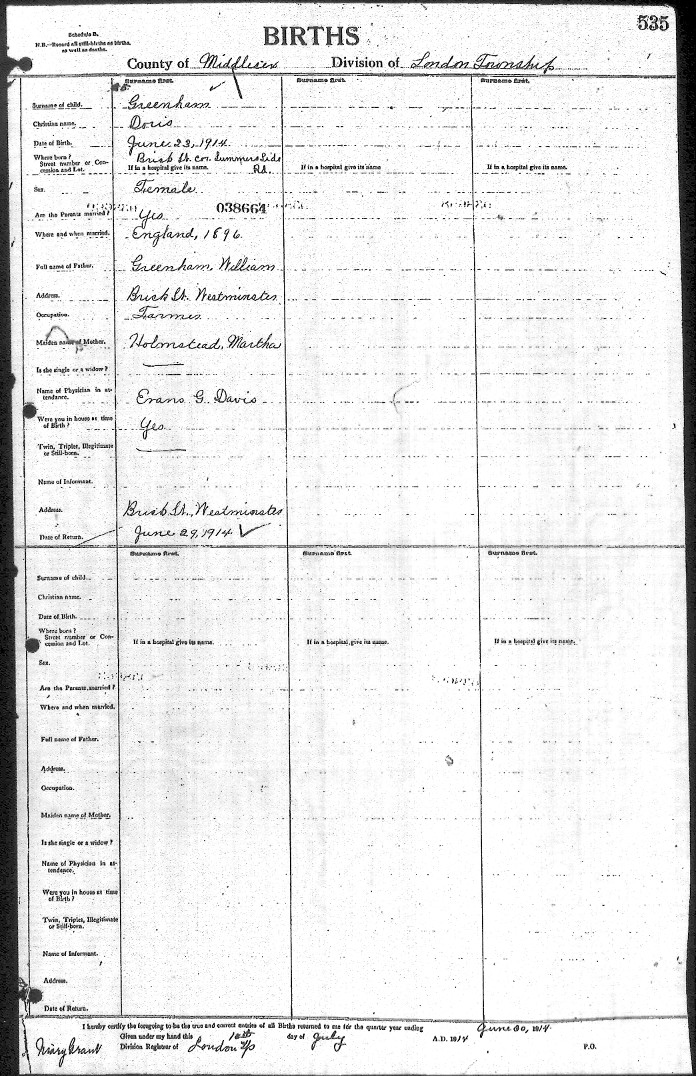 535
Schedule B.
N.B.—Record all still-births as births, as well as deaths.
BIRTHS
County of Middlesex Division of London Township
Surname first. Surname first. Surname first.
Surname of child. Greenham
Christian name. Doris
Date of Birth. June 23, 1914
Where born? Brick St. cor. Summers Side
Street number or Concession and Lot. If in a hospital give its name. Rd. If in a hospital give its name If in a hospital give its name.
Sex. Female
Are the Parents married? Yes 038664
Where and when married. England, 1896
Full name of Father. Greenham, William
Address. Brick St. Westminster
Occupation. Farmer
Maiden name of Mother. Holmstead, Martha
Is she single or a widow?
Name of Physician in attendance. Evans G. Davis
Were you in house at time of Birth? Yes
Twin, Triplet, Illegitimate or Still-born.
Name of Informant.
Address. Brick St., Westminster
Date of Return. June 29, 1914
Surname first. Surname first. Surname first.
Surname of child.
Christian name.
Date of Birth.
Where born?
Street number or Concession and Lot. If in a hospital give its name. If in a hospital, give its name. If in a hospital give its name.
Sex.
Are the Parents married?
Where and when married.
Full name of Father.
Address.
Occupation.
Maiden name of Mother.
Is she single or a widow?
Name of Physician in attendance.
Were you in house at time of Birth?
Twin, Triplet, Illegitimate or Still-born.
Name of Informant.
Address.
Date of Return.
I hereby certify the foregoing to be the true and correct entries of all Births returned to me for the quarter year ending June 30, 1914
Given under my hand this 10th day of July A.D. 1914
Mary Grant Division Registrar of London T/p P.O.